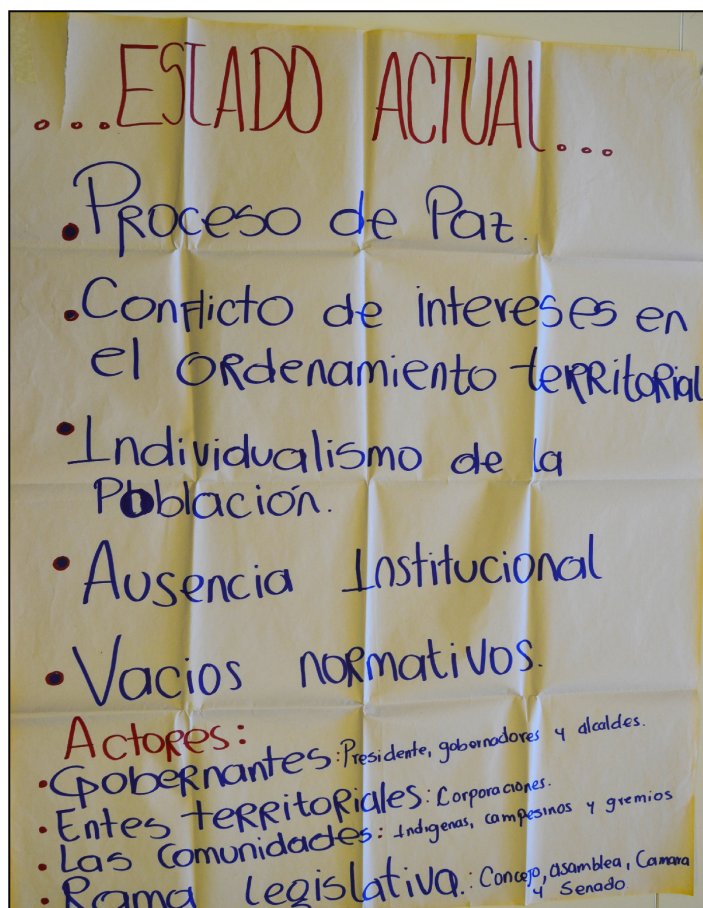 ...ESTADO ACTUAL...
• Proceso de Paz.
• Conflicto de intereses en
el ordenamiento territorial
• Individualismo de la
Población.
• Ausencia Institucional
• Vacios normativos.
Actores:
• Gobernantes: Presidente, gobernadores y alcaldes.
• Entes territoriales: Corporaciones.
• Las Comunidades: Indigenas, campesinos y gremios
• Rama legislativa.: Concejo, asamblea, Camara
y Senado